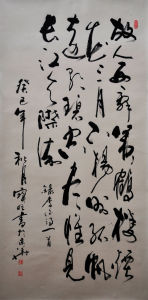 故人西辭黃鶴樓煙
花三月下揚州孤帆
遠影碧空盡惟見
長江天際流
錄李白詩一首
癸巳年秋月書於